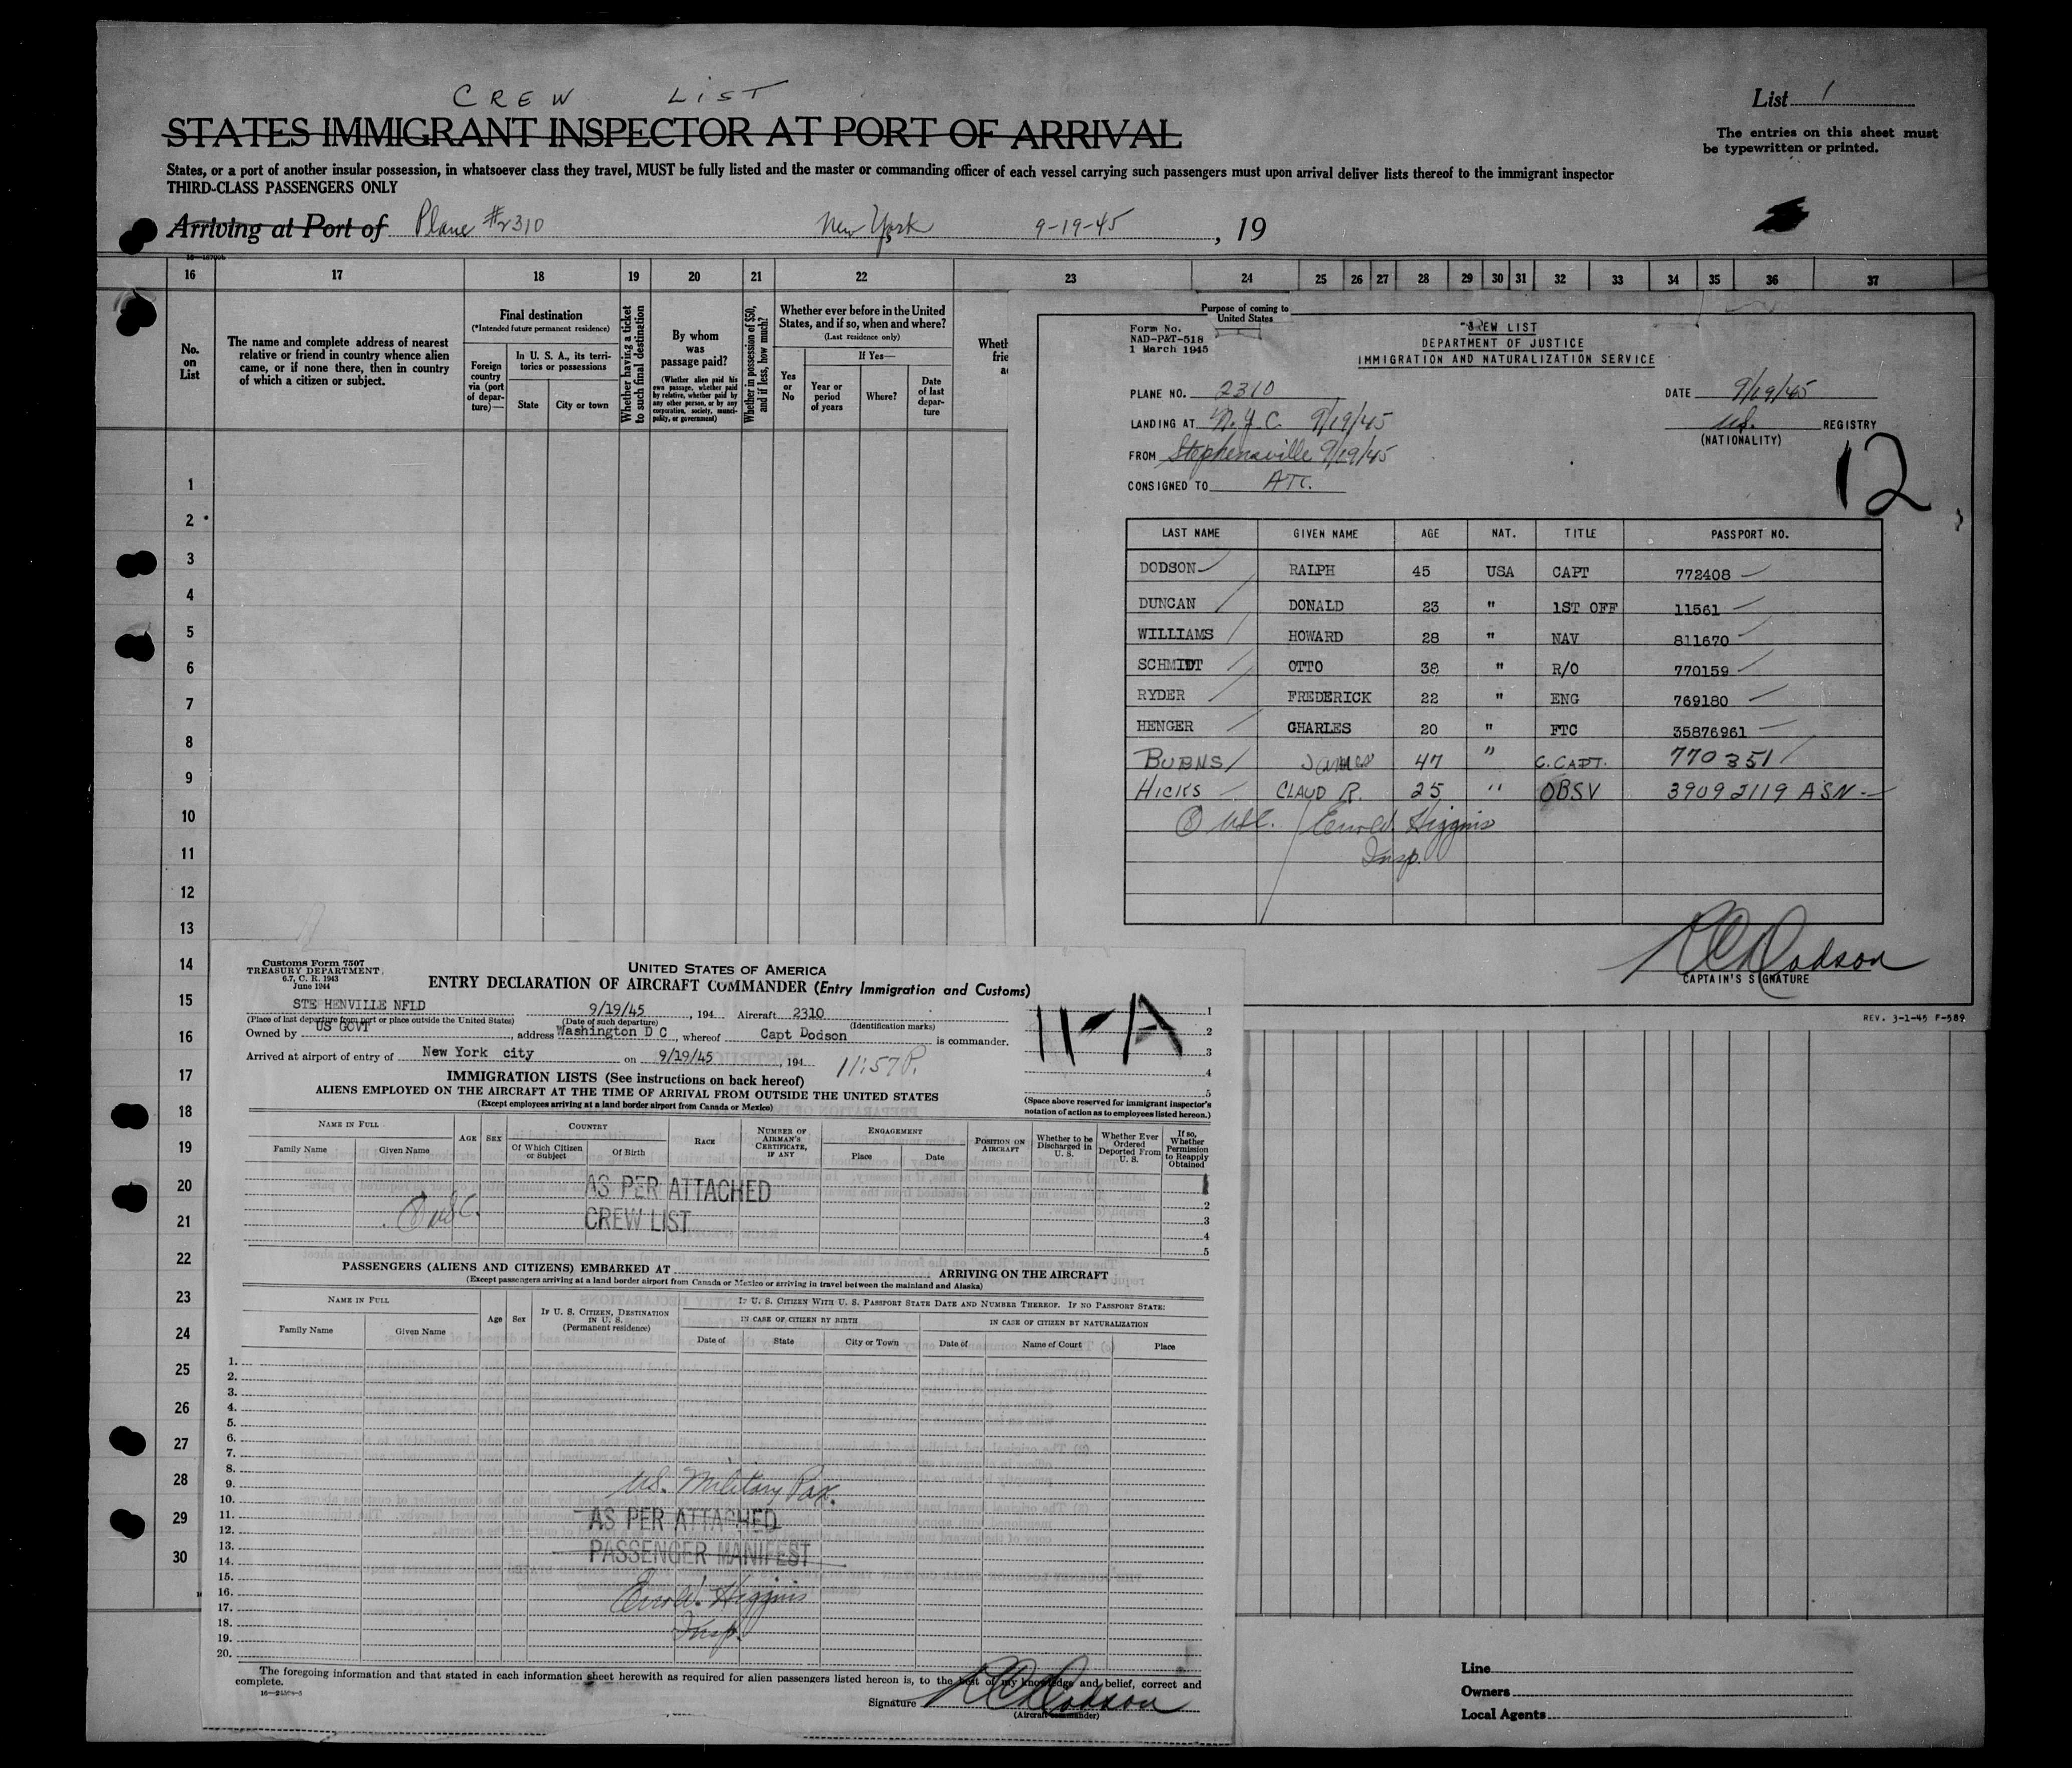 CREW LIST
List 1
STATES IMMIGRANT INSPECTOR AT PORT OF ARRIVAL
The entries on this sheet must
be typewritten or printed.
States, or a port of another insular possession, in whatsoever class they travel, MUST be fully listed and the master or commanding officer of each vessel carrying such passengers must upon arrival deliver lists thereof to the immigrant inspector
THIRD-CLASS PASSENGERS ONLY
Arriving at Port of Plane #2310 New York 9-19-45, 19
16 17 18 19 20 21 22 23 24 25 26 27 28 29 30 31 32 33 34 35 36 37
No.
on
List
The name and complete address of nearest
relative or friend in country whence alien
came, or if none there, then in country
of which a citizen or subject.
Final destination
(*Intended future permanent residence)
Foreign
country
via (port
of depar-
ture)—
In U. S. A., its terri-
tories or possessions
State
City or town
Whether having a ticket
to such final destination
By whom
was
passage paid?
(Whether alien paid his
own passage, whether paid
by relative, whether paid by
any other person, or by any
corporation, society, munici-
pality, or government)
Whether in possession of $50,
and if less, how much?
Whether ever before in the United
States, and if so, when and where?
(Last residence only)
Yes
or
No
If Yes—
Year or
period
of years
Where?
Date
of last
depar-
ture
Purpose of coming to
United States
1
2
3
4
5
6
7
8
9
10
11
12
13
14
15
16
17
18
19
20
21
22
23
24
25
26
27
28
29
30
Form No.
NAD-P&T-518
1 March 1945
CREW LIST
DEPARTMENT OF JUSTICE
IMMIGRATION AND NATURALIZATION SERVICE
PLANE NO. 2310
DATE 9/19/45
LANDING AT N.Y.C. 9/19/45
U.S. REGISTRY
(NATIONALITY)
FROM Stephensville 9/19/45
CONSIGNED TO ATC.
12
LAST NAME GIVEN NAME AGE NAT. TITLE PASSPORT NO.
DODSON RALPH 45 USA CAPT 772408
DUNCAN DONALD 23 " 1ST OFF 11561
WILLIAMS HOWARD 28 " NAV 811670
SCHMIDT OTTO 38 " R/O 770159
RYDER FREDERICK 22 " ENG 769180
HENGER CHARLES 20 " FTC 35876961
BURNS James 47 " C. CAPT. 770351
HICKS CLAUD R. 25 " OBSV 39092119 ASN
⑧ USC. Higgins
Insp.
R C Dodson
CAPTAIN'S SIGNATURE
REV. 3-1-45 F-589
Customs Form 7507
TREASURY DEPARTMENT
6.7, C. R. 1943
June 1944
UNITED STATES OF AMERICA
ENTRY DECLARATION OF AIRCRAFT COMMANDER (Entry Immigration and Customs)
STE HENVILLE NFLD 9/19/45, 194 Aircraft 2310
(Place of last departure from port or place outside the United States) (Date of such departure) (Identification marks)
Owned by US GOVT, address Washington D C, whereof Capt Dodson is commander.
Arrived at airport of entry of New York city on 9/19/45, 194 11:57 P.
11-A
1
2
3
4
5
(Space above reserved for immigrant inspector's
notation of action as to employees listed hereon.)
IMMIGRATION LISTS (See instructions on back hereof)
ALIENS EMPLOYED ON THE AIRCRAFT AT THE TIME OF ARRIVAL FROM OUTSIDE THE UNITED STATES
(Except employees arriving at a land border airport from Canada or Mexico)
NAME IN FULL
Family Name
Given Name
AGE
SEX
COUNTRY
Of Which Citizen
or Subject
Of Birth
RACE
NUMBER OF
AIRMAN'S
CERTIFICATE,
IF ANY
ENGAGEMENT
Place
Date
POSITION ON
AIRCRAFT
Whether to be
Discharged in
U. S.
Whether Ever
Ordered
Deported From
U. S.
If so,
Whether
Permission
to Reapply
Obtained
AS PER ATTACHED
CREW LIST
⑧ USC.
1
2
3
4
5
PASSENGERS (ALIENS AND CITIZENS) EMBARKED AT ARRIVING ON THE AIRCRAFT
(Except passengers arriving at a land border airport from Canada or Mexico or arriving in travel between the mainland and Alaska)
NAME IN FULL
Family Name
Given Name
Age
Sex
IF U. S. CITIZEN, DESTINATION
IN U. S.
(Permanent residence)
IF U. S. CITIZEN WITH U. S. PASSPORT STATE DATE AND NUMBER THEREOF. IF NO PASSPORT STATE:
IN CASE OF CITIZEN BY BIRTH
Date of
State
City or Town
IN CASE OF CITIZEN BY NATURALIZATION
Date of
Name of Court
Place
1.
2.
3.
4.
5.
6.
7.
8.
9.
10.
11.
12.
13.
14.
15.
16.
17.
18.
19.
20.
US. Military Pax.
AS PER ATTACHED
PASSENGER MANIFEST
Higgins
Insp.
The foregoing information and that stated in each information sheet herewith as required for alien passengers listed hereon is, to the best of my knowledge and belief, correct and
complete.
Signature R C Dodson
(Aircraft commander)
Line
Owners
Local Agents